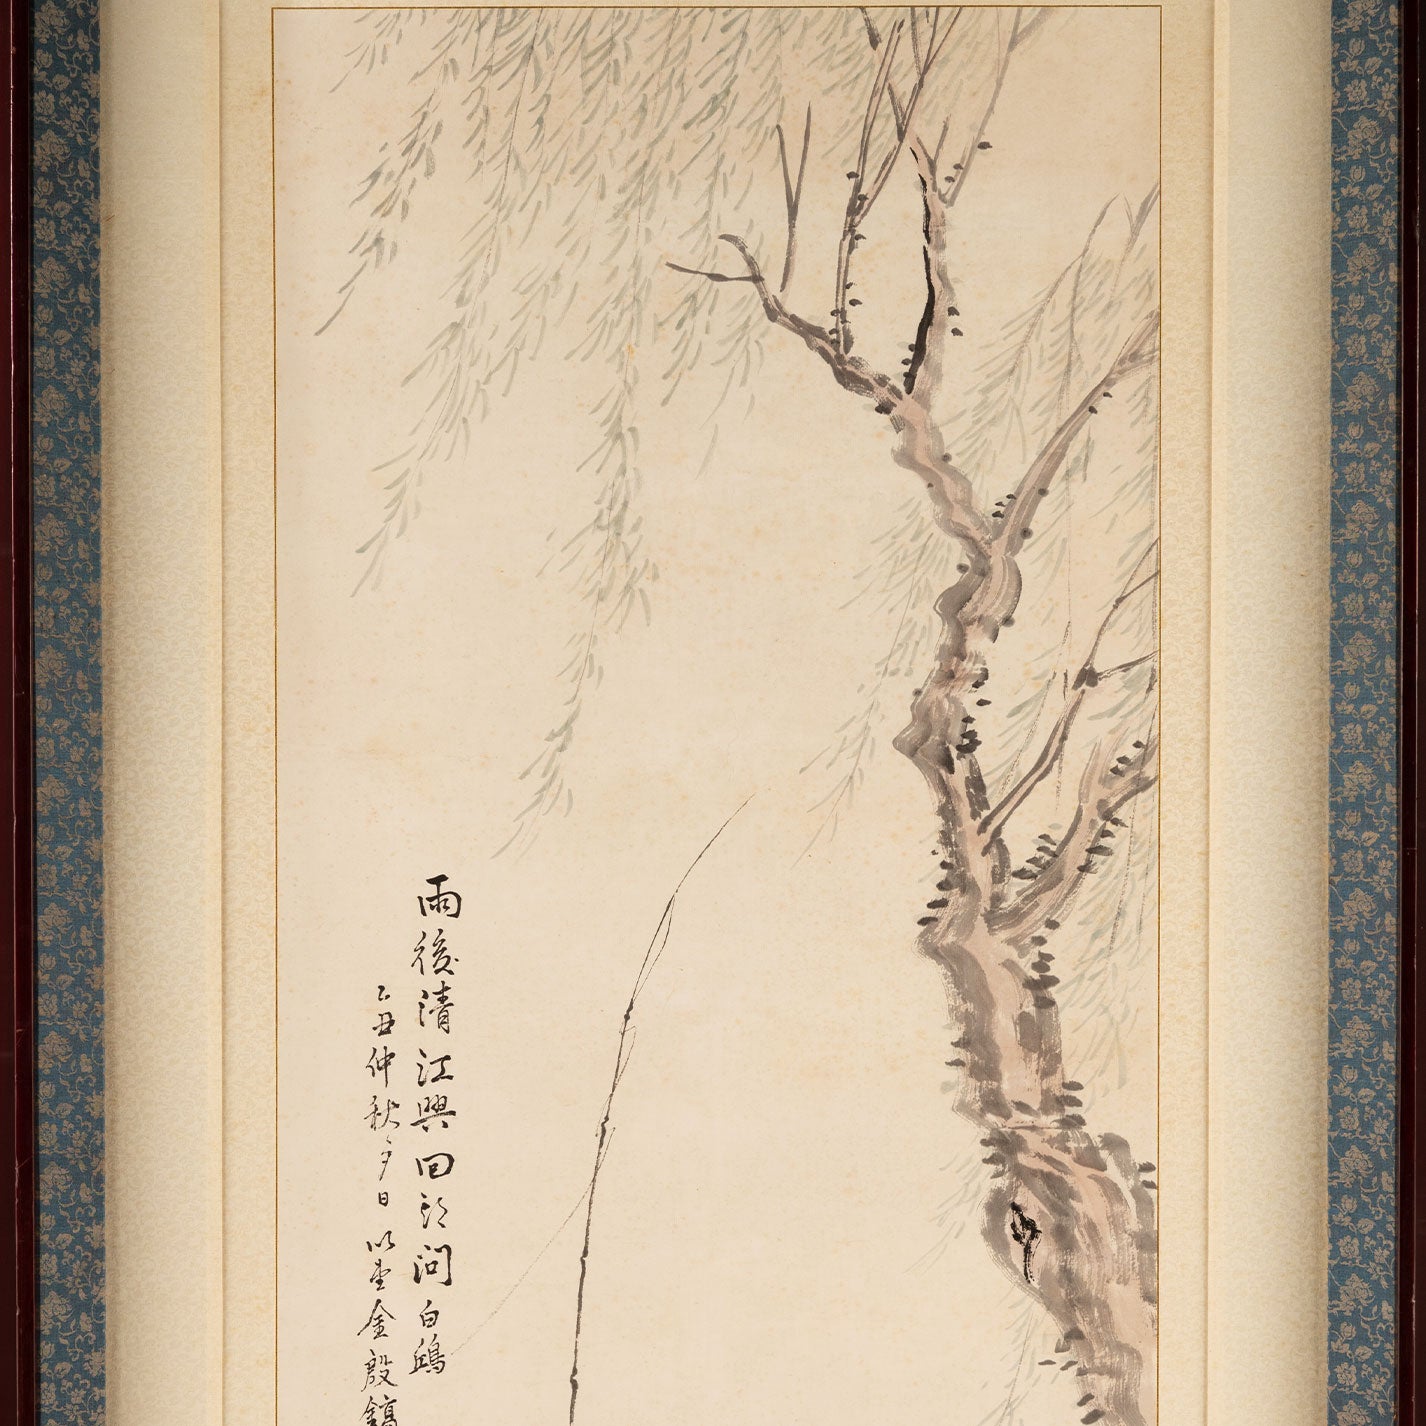 雨後清江興回頭問白鷗
乙丑仲秋 日以堂金殷鎬